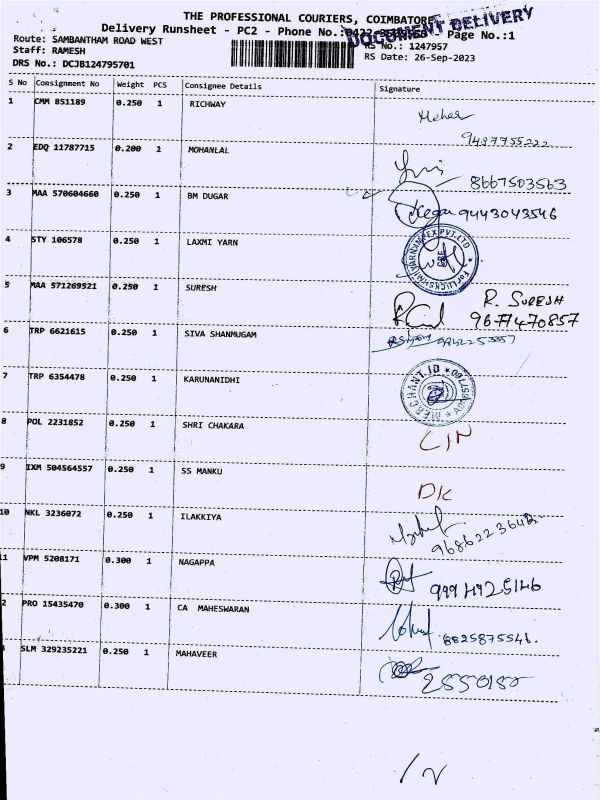 THE PROFESSIONAL COURIERS, COIMBATORE
DOCUMENT DELIVERY
Delivery Runsheet - PC2 - Phone No.: Page No.:1
Route: SAMBANTHAM ROAD WEST RS No.: 1247957
Staff: RAMESH RS Date: 26-Sep-2023
DRS No.: DCJB124795701
S No Consignment No Weight PCS Consignee Details Signature
1 CMM 851189 0.250 1 RICHWAY
9487755222
2 EDQ 11787715 0.200 1 MOHANLAL
8667503563
3 MAA 570604660 0.250 1 BM DUGAR 9443043546
4 STY 106578 0.250 1 LAXMI YARN
5 MAA 571269521 0.250 1 SURESH R. SURESH
9677470857
6 TRP 6621615 0.250 1 SIVA SHANMUGAM
7 TRP 6354478 0.250 1 KARUNANIDHI
MERCHANT.ID
8 POL 2231852 0.250 1 SHRI CHAKARA
9 IXM 504564557 0.250 1 SS MANKU DK
10 NKL 3236072 0.250 1 ILAKKIYA
9686223642
11 VPM 5208171 0.300 1 NAGAPPA
9994925146
2 PRO 15435470 0.300 1 CA MAHESWARAN 8825875546.
SLM 329235221 0.250 1 MAHAVEER
2550182